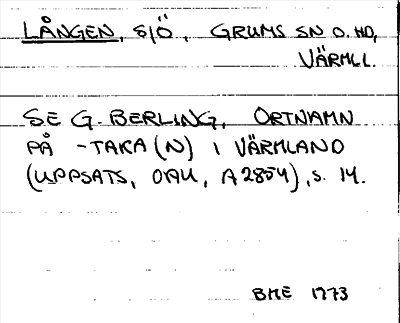 LÅNGEN, SJÖ, GRUMS SN O. HD,
VÄRML.
SE G. BERLING, ORTNAMN
PÅ -TAKA(N) I VÄRMLAND
(UPPSATS, OAU, A2854), s. 14.
BME 1973